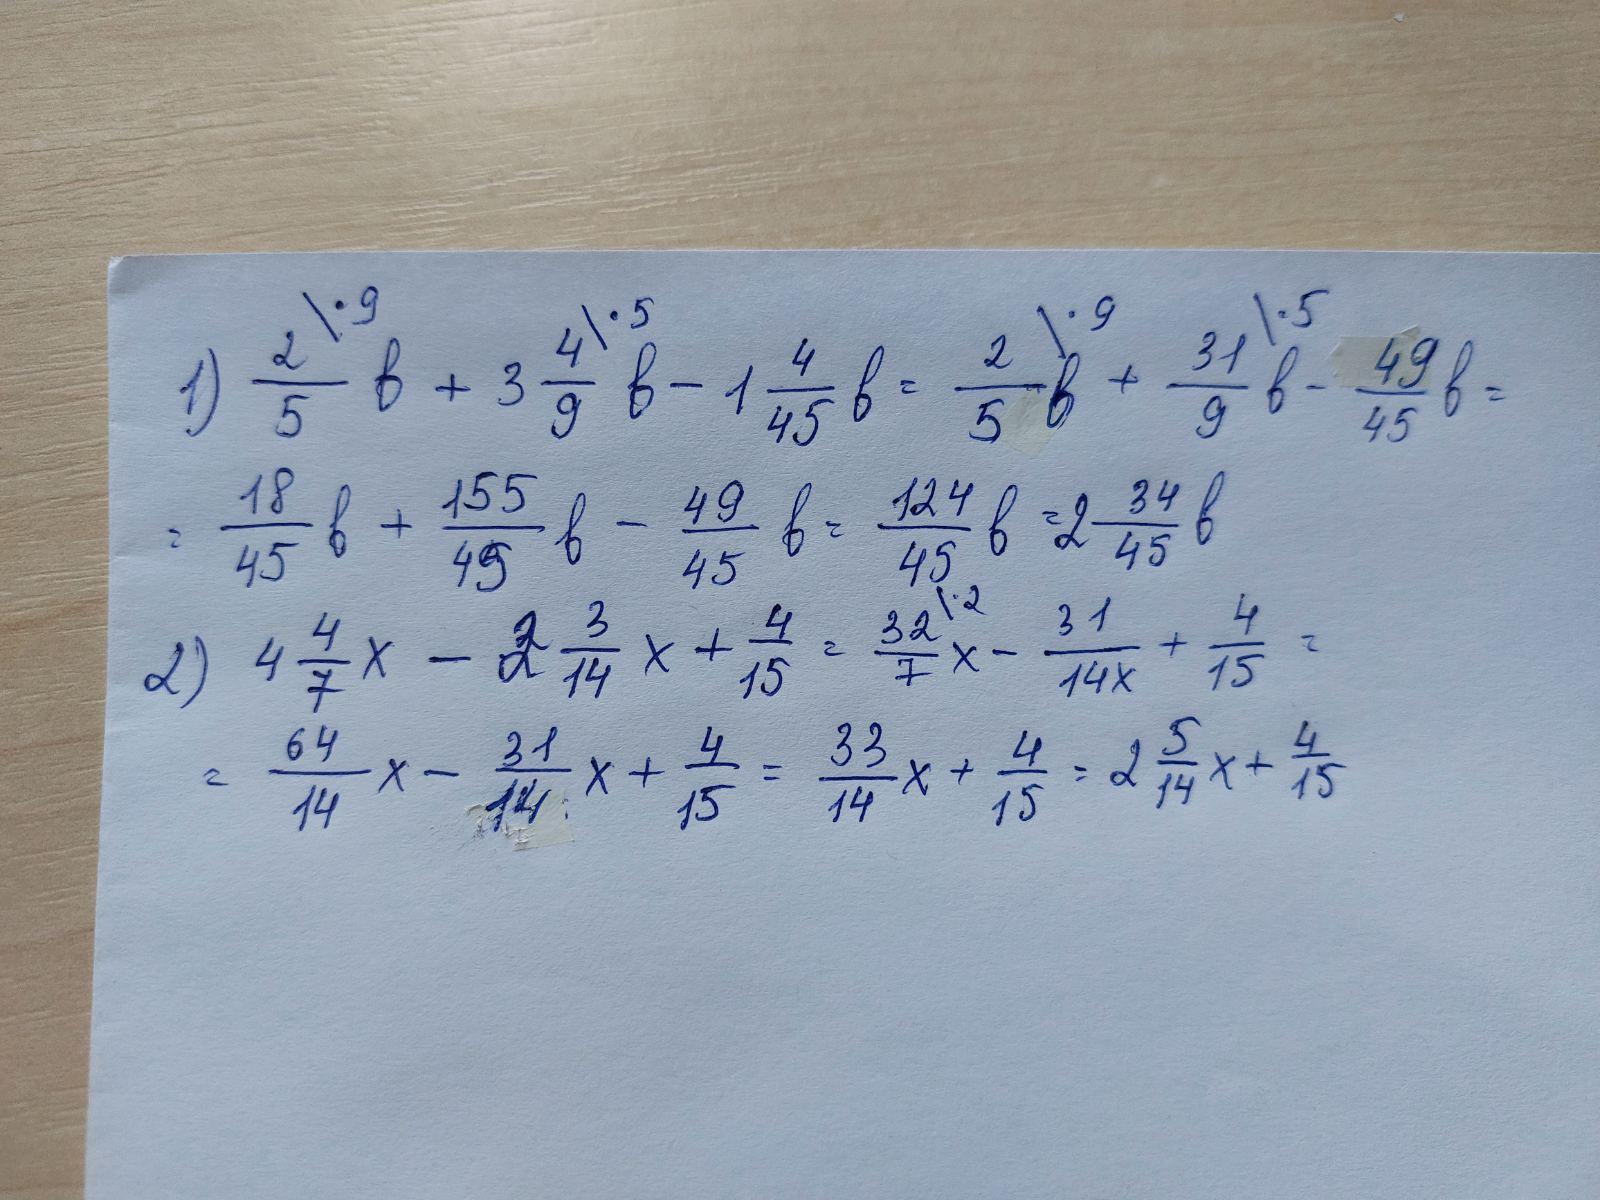 1) 2/5 \·9 в + 3 4/9 \·5 в - 1 4/45 в = 2/5 \·9 в + 31/9 \·5 в - 49/45 в =
= 18/45 в + 155/45 в - 49/45 в = 124/45 в = 2 34/45 в
2) 4 4/7 х - 2 3/14 х + 4/15 = 32/7 \·2 х - 31/14х + 4/15 =
= 64/14 х - 31/14 х + 4/15 = 33/14 х + 4/15 = 2 5/14 х + 4/15